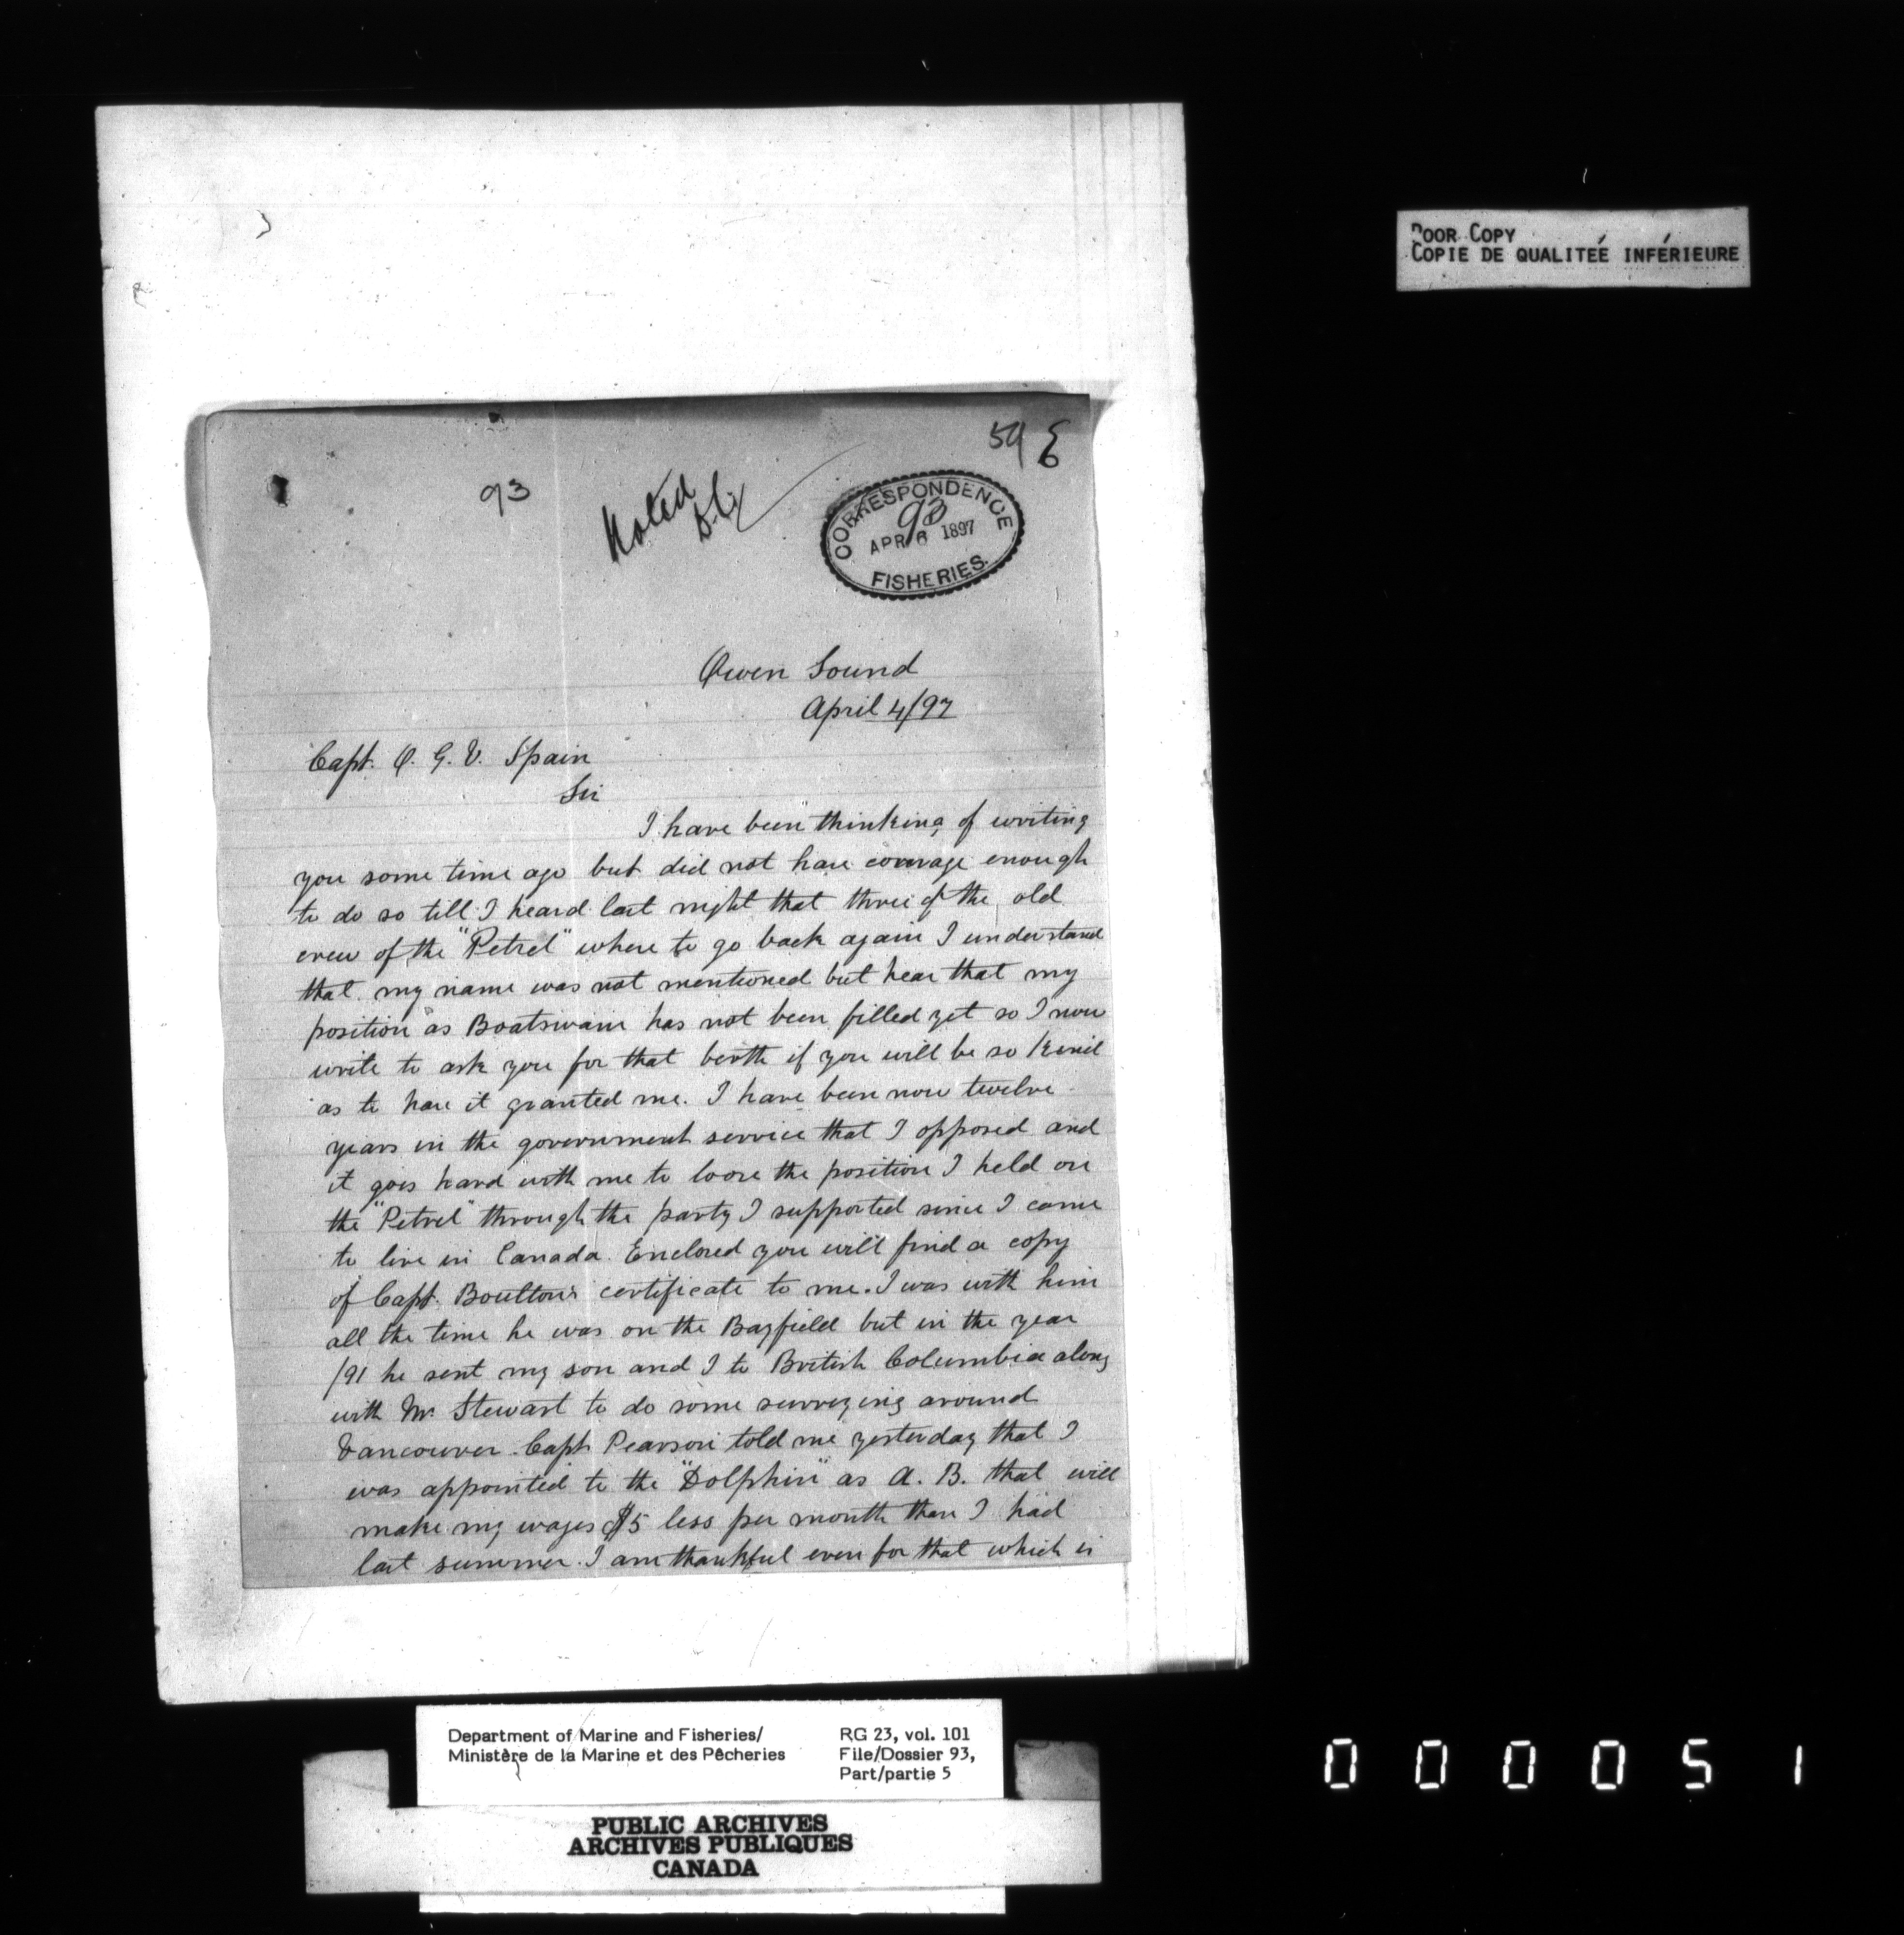 POOR COPY
COPIE DE QUALITEÉ INFÉRIEURE
59
93
Noted
CORRESPONDENCE
93
APR 6 1897
FISHERIES.
Owen Sound
April 4/97
Capt. O. G. V. Spain
Sir
I have been thinking of writing
you some time ago but did not have courage enough
to do so till I heard last night that three of the old
crew of the "Petrel" where to go back again I understand
that my name was not mentioned but hear that my
position as Boatswain has not been filled yet so I now
write to ask you for that berth if you will be so kind
as to have it granted me. I have been now twelve
years in the government service that I opposed and
it goes hard with me to loose the position I held on
the "Petrel" through the party I supported since I came
to live in Canada. Enclosed you will find a copy
of Capt. Boulton's certificate to me. I was with him
all the time he was on the Bayfield but in the year
/91 he sent my son and I to British Columbia along
with Mr Stewart to do some surveying around
Vancouver. Capt Pearson told me yesterday that I
was appointed to the "Dolphin" as A. B. that will
make my wages $5 less per month than I had
last summer. I am thankful even for that which is
Department of Marine and Fisheries/
Ministère de la Marine et des Pêcheries
RG 23, vol. 101
File/Dossier 93,
Part/partie 5
PUBLIC ARCHIVES
ARCHIVES PUBLIQUES
CANADA
000051